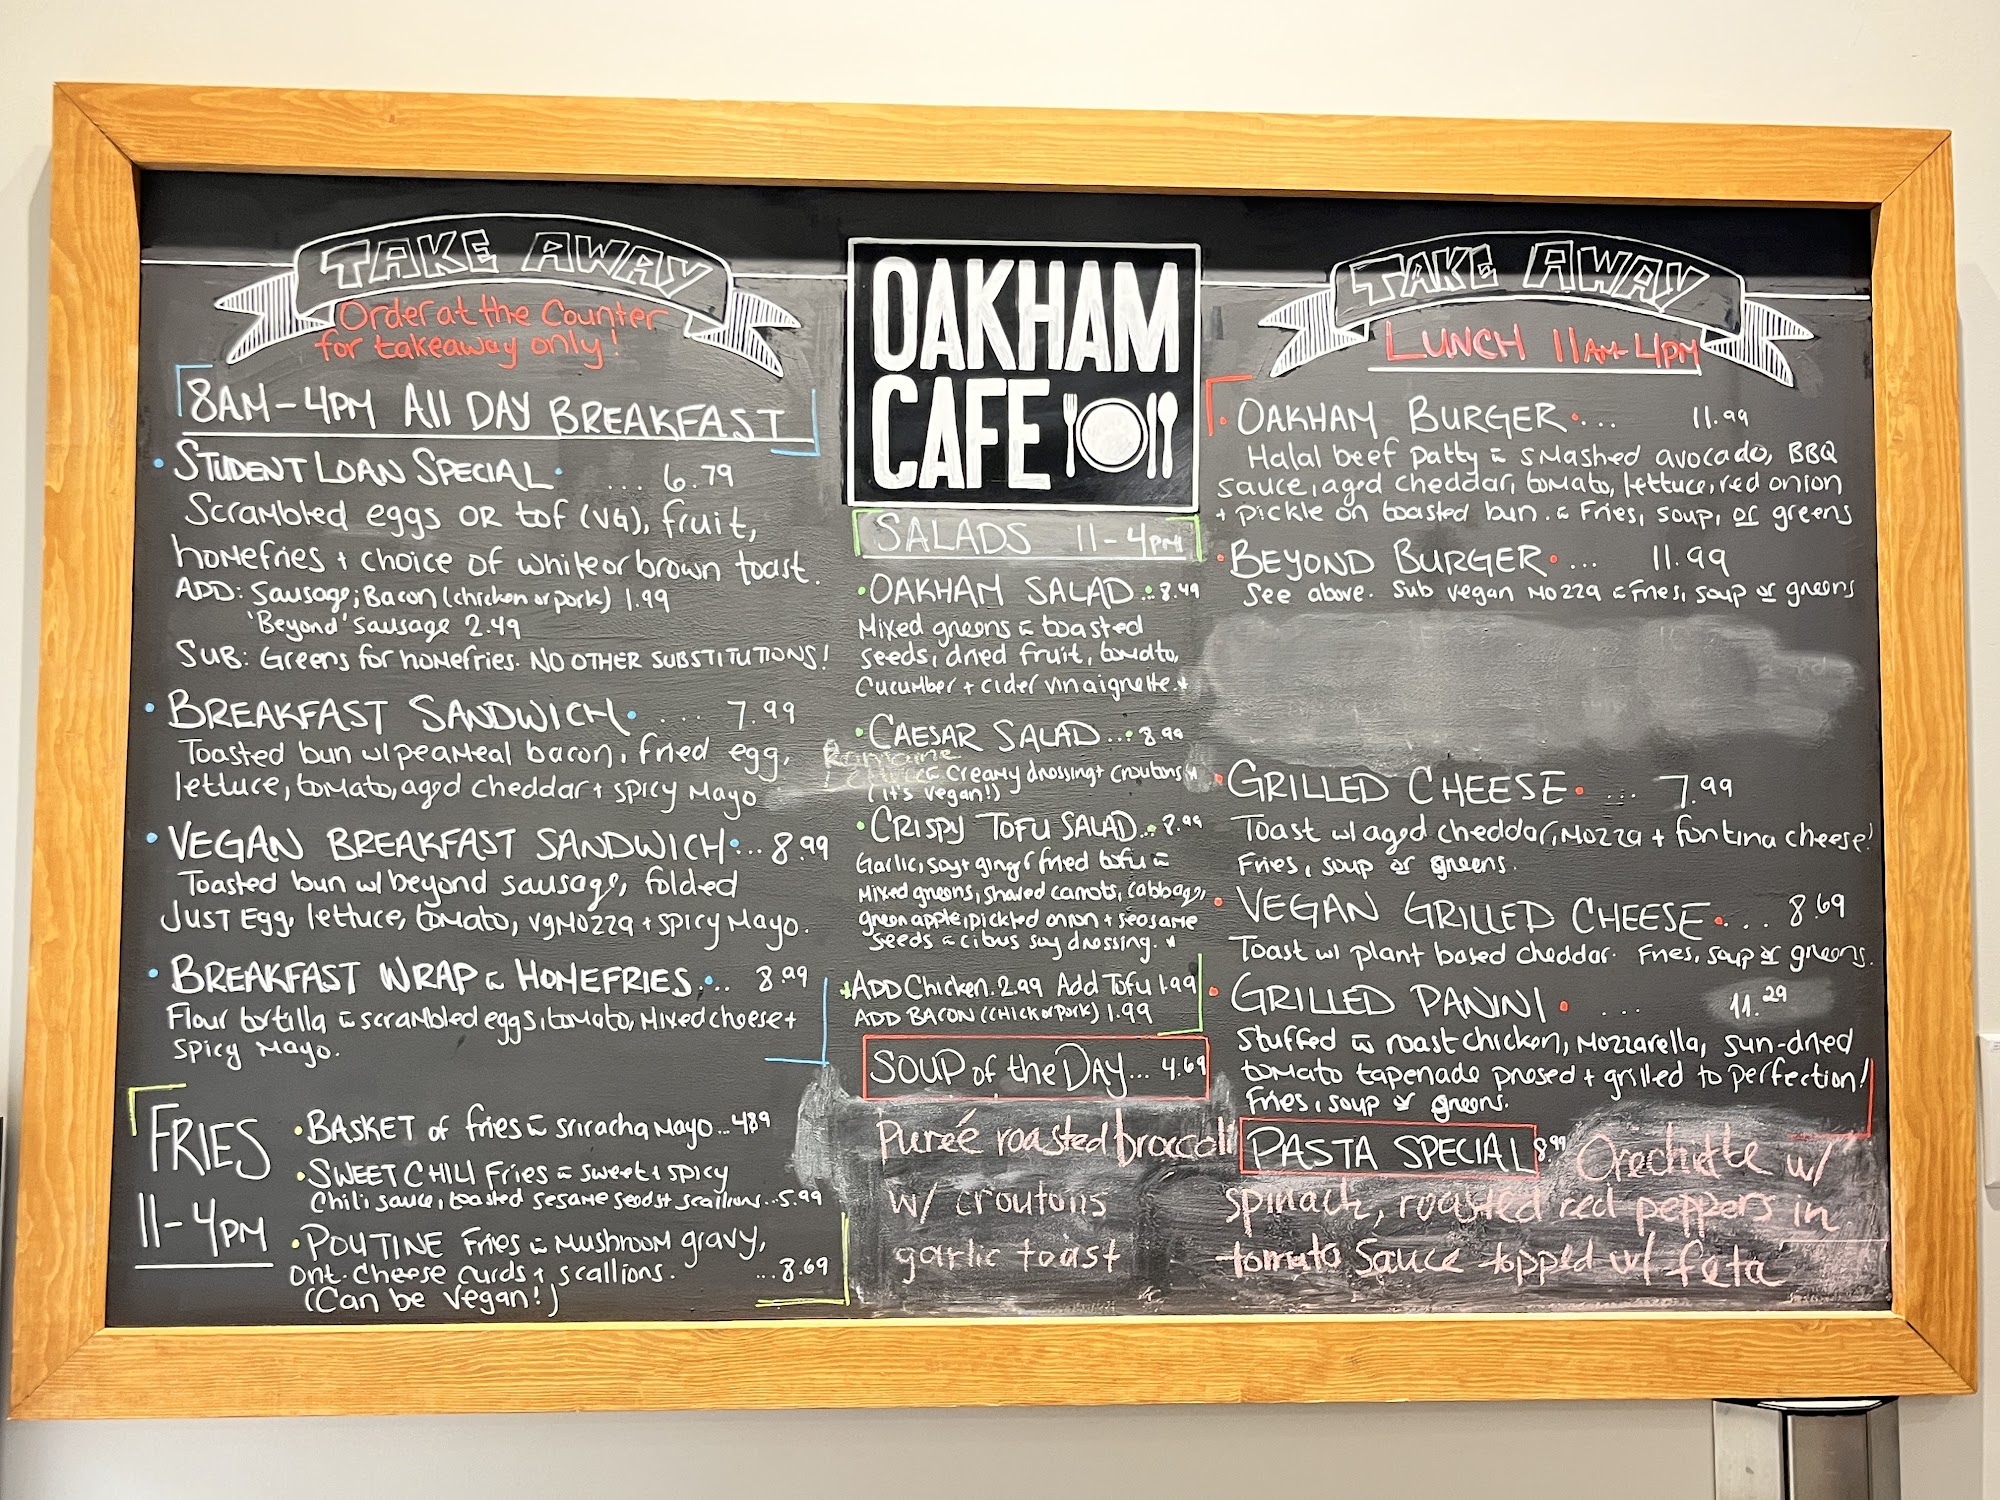 TAKE AWAY
Order at the Counter
for takeaway only!
8AM - 4PM All DAY BREAKFAST
• STUDENT LOAN SPECIAL • ... 6.79
Scrambled eggs OR tof (VG), fruit,
homefries + choice of white or brown toast.
ADD: Sausage; Bacon (chicken or pork) 1.99
'Beyond' sausage 2.49
SUB: Greens for homefries. NO OTHER SUBSTITUTIONS!
• BREAKFAST SANDWICH • ... 7.99
Toasted bun w/ peameal bacon, fried egg,
lettuce, tomato, aged cheddar + spicy mayo
• VEGAN BREAKFAST SANDWICH • ... 8.99
Toasted bun w/ beyond sausage, folded
JUST Egg, lettuce, tomato, vg mozza + spicy mayo.
• BREAKFAST WRAP c̄ HOMEFRIES • ... 8.99
Flour tortilla c̄ scrambled eggs, tomato, mixed cheese +
spicy mayo.
FRIES
11-4PM
• BASKET of fries c̄ sriracha mayo ... 4.89
• SWEET CHILI Fries c̄ sweet + spicy
Chili sauce, toasted sesame seeds + scallions ... 5.99
• POUTINE Fries c̄ mushroom gravy,
ont. cheese curds + scallions. ... 8.69
(Can be vegan!)
OAKHAM
CAFE
SALADS 11-4PM
• OAKHAM SALAD ... 8.49
Mixed greens c̄ toasted
seeds, dried fruit, tomato,
Cucumber + cider vinaigrette. *
• CAESAR SALAD ... 8.99
Romaine
c̄ creamy dressing + croutons *
(it's vegan!)
• CRISPY TOFU SALAD ... 8.99
Garlic, soy + ginger fried tofu c̄
mixed greens, shaved carrots, cabbage,
green apple, pickled onion + seasame
seeds c̄ citrus soy dressing. *
* ADD Chicken. 2.99 Add Tofu 1.99
ADD BACON (CHICK or PORK) 1.99
SOUP of the DAY ... 4.69
Pureé roasted broccoli
w/ croutons
garlic toast
TAKE AWAY
LUNCH 11AM - 4PM
• OAKHAM BURGER • ... 11.99
Halal beef patty c̄ smashed avocado, BBQ
sauce, aged cheddar, tomato, lettuce, red onion
+ pickle on toasted bun. c̄ Fries, soup, or greens
• BEYOND BURGER • ... 11.99
See above. Sub vegan mozza c̄ fries, soup or greens
• GRILLED CHEESE • ... 7.99
Toast w/ aged cheddar, mozza + fontina cheese!
Fries, soup or greens.
• VEGAN GRILLED CHEESE • ... 8.69
Toast w/ plant based cheddar. Fries, soup or greens.
• GRILLED PANINI • ... 11.29
Stuffed c̄ roast chicken, mozzarella, sun-dried
tomato tapenade pressed + grilled to perfection!
Fries, soup or greens.
PASTA SPECIAL 8.99 Orechiette w/
spinach, roasted red peppers in
tomato sauce topped w/ feta